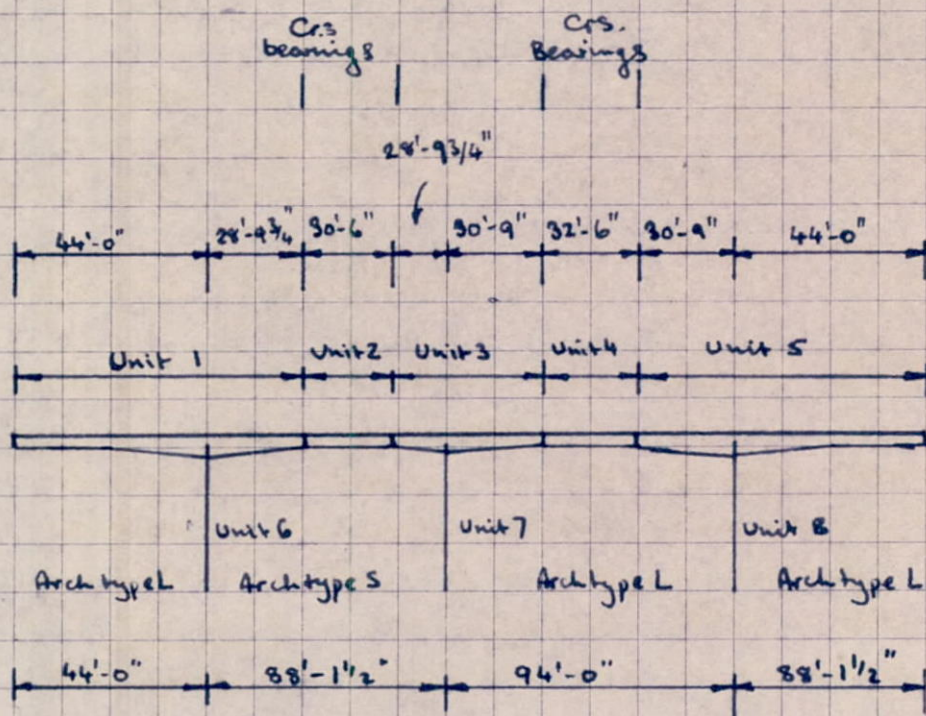 Crs
bearings
Crs.
Bearings
28'-9 3/4"
44'-0"
28'-9 3/4"
30'-6"
30'-9"
32'-6"
30'-9"
44'-0"
Unit 1
Unit 2
Unit 3
Unit 4
Unit 5
Unit 6
Unit 7
Unit 8
Arch type L
Arch type S
Arch type L
Arch type L
44'-0"
88'-1 1/2"
94'-0"
88'-1 1/2"